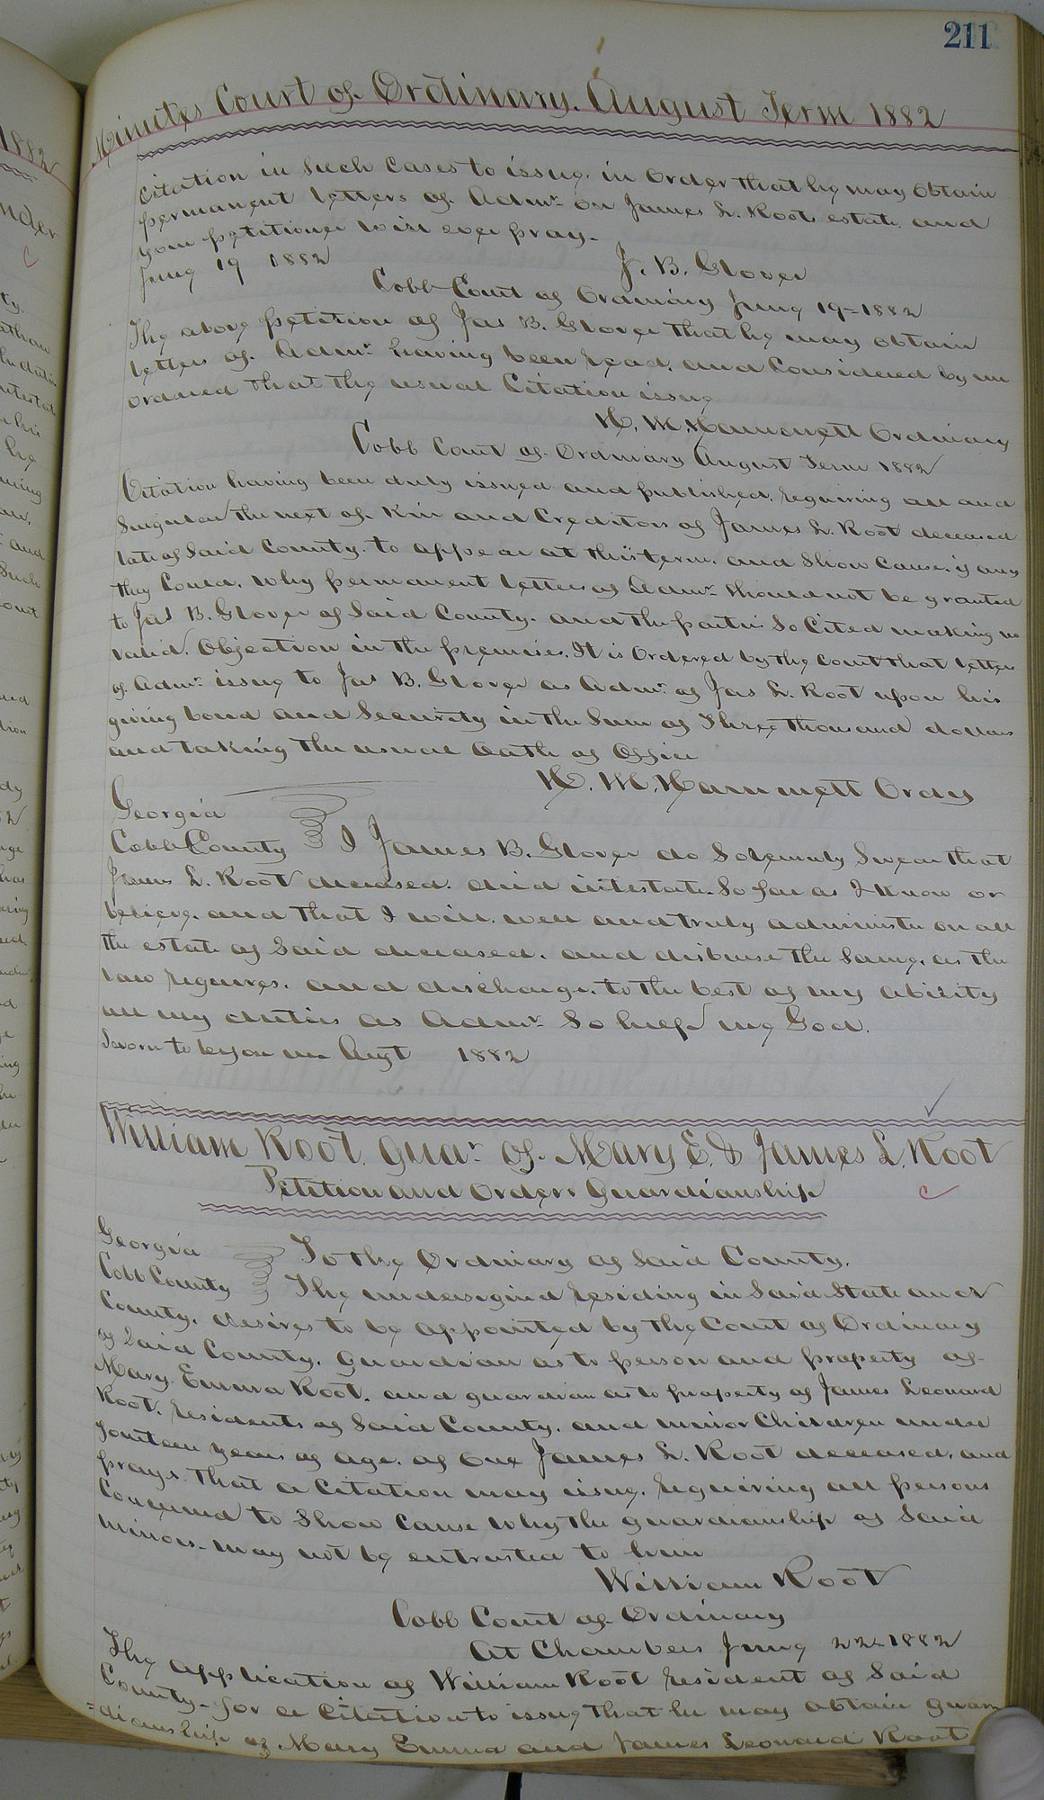 211
Minutes Court of Ordinary. August Term 1882
Citation in Such Cases to issue, in Order that he may Obtain
permanent letters of Admr. on James L. Root, estate, and
your petitioner will ever pray.
June 19 1882 J. B. Glover
Cobb Court of Ordinary June 19-1882
The above petition of Jas B. Glover that he may obtain
letters of Admr. having been read, and Considered by me
ordered that the usual Citation issue
H. M. Hammett Ordinary
Cobb Court of Ordinary August Term 1882
Citation having been duly issued and published, requiring all and
Singular the next of Kin and Creditors of James L. Root deceased
late of Said County, to appear at this term, and Show Cause, if any
they Could, Why permanent letters of Admr. Should not be granted
to Jas B. Glover of Said County, and the parties So Cited making no
valid Objection in the premises. It is Ordered by the Court that letters
of Admr. issue to Jas B. Glover as Admr. of Jas L. Root upon his
giving bond and Security in the Sum of Three thousand dollars
and taking the usual Oath of Office
H. M. Hammett Ordy
Georgia
Cobb County I James B. Glover do Solemnly Swear that
James L. Root deceased, died intestate, So far as I Know or
believe, and that I will, well and truly administer on all
the estate of Said deceased, and disburse the Same, as the
law requires, and discharge, to the best of my ability
all my duties as Admr. So help me God.
Sworn to before me Augt 1882
William Root, Guar. of Mary E. & James L. Root
Petition and Order, Guardianship
Georgia To the Ordinary of Said County,
Cobb County The undersigned residing in Said State and
County, desires to be appointed by the Court of Ordinary
of Said County, guardian as to person and property of
Mary Emma Root, and guardian as to property of James Leonard
Root, residents of Said County, and minor Children under
fourteen years of age, of one James L. Root deceased, and
prays that a Citation may issue, requiring all persons
Concerned to Show Cause Why the guardianship of Said
minors may not be entrusted to him
William Root
Cobb Court of Ordinary
At Chambers June 22-1882
The application of William Root resident of Said
County- for a Citation to issue that he may obtain guar
=dianship of Mary Emma and James Leonard Root